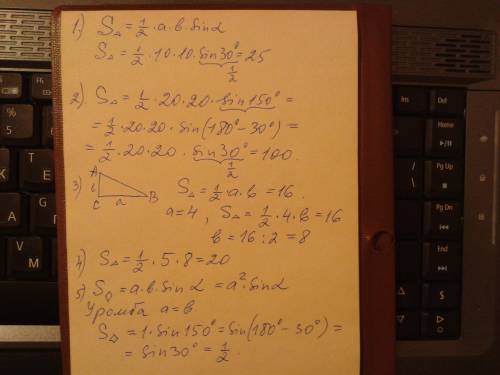 1) S△ = 1/2 · a · b · sinα
S△ = 1/2 · 10 · 10 · sin30° = 25
1/2
2) S△ = 1/2 · 20 · 20 · sin150° =
= 1/2 · 20 · 20 · sin(180° - 30°) =
= 1/2 · 20 · 20 · sin30° = 100.
1/2
3) A B C a b
S△ = 1/2 · a · b = 16.
a = 4, S△ = 1/2 · 4 · b = 16
b = 16 : 2 = 8
4) S△ = 1/2 · 5 · 8 = 20
5) S◊ = a · b · sinα = a² · sinα
У ромба a = b
S◊ = 1 · sin150° = sin(180° - 30°) =
= sin30° = 1/2.
%
5
К
М
Ins
Del
Home
Pg Up
Pg Dn
End